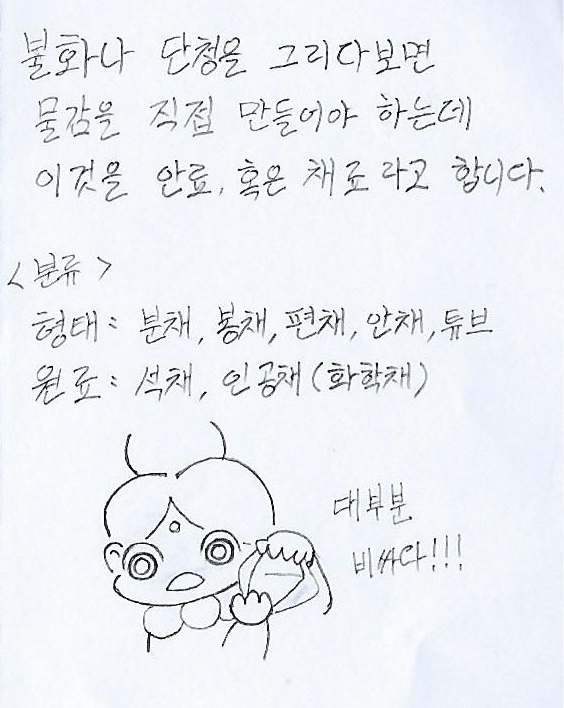 불화나 단청을 그리다보면
물감을 직접 만들어야 하는데
이것을 안료, 혹은 채료라고 합니다.
<분류>
형태: 분채, 봉채, 편채, 안채, 튜브
원료: 석채, 인공채(화학채)
대부분
비싸다!!!